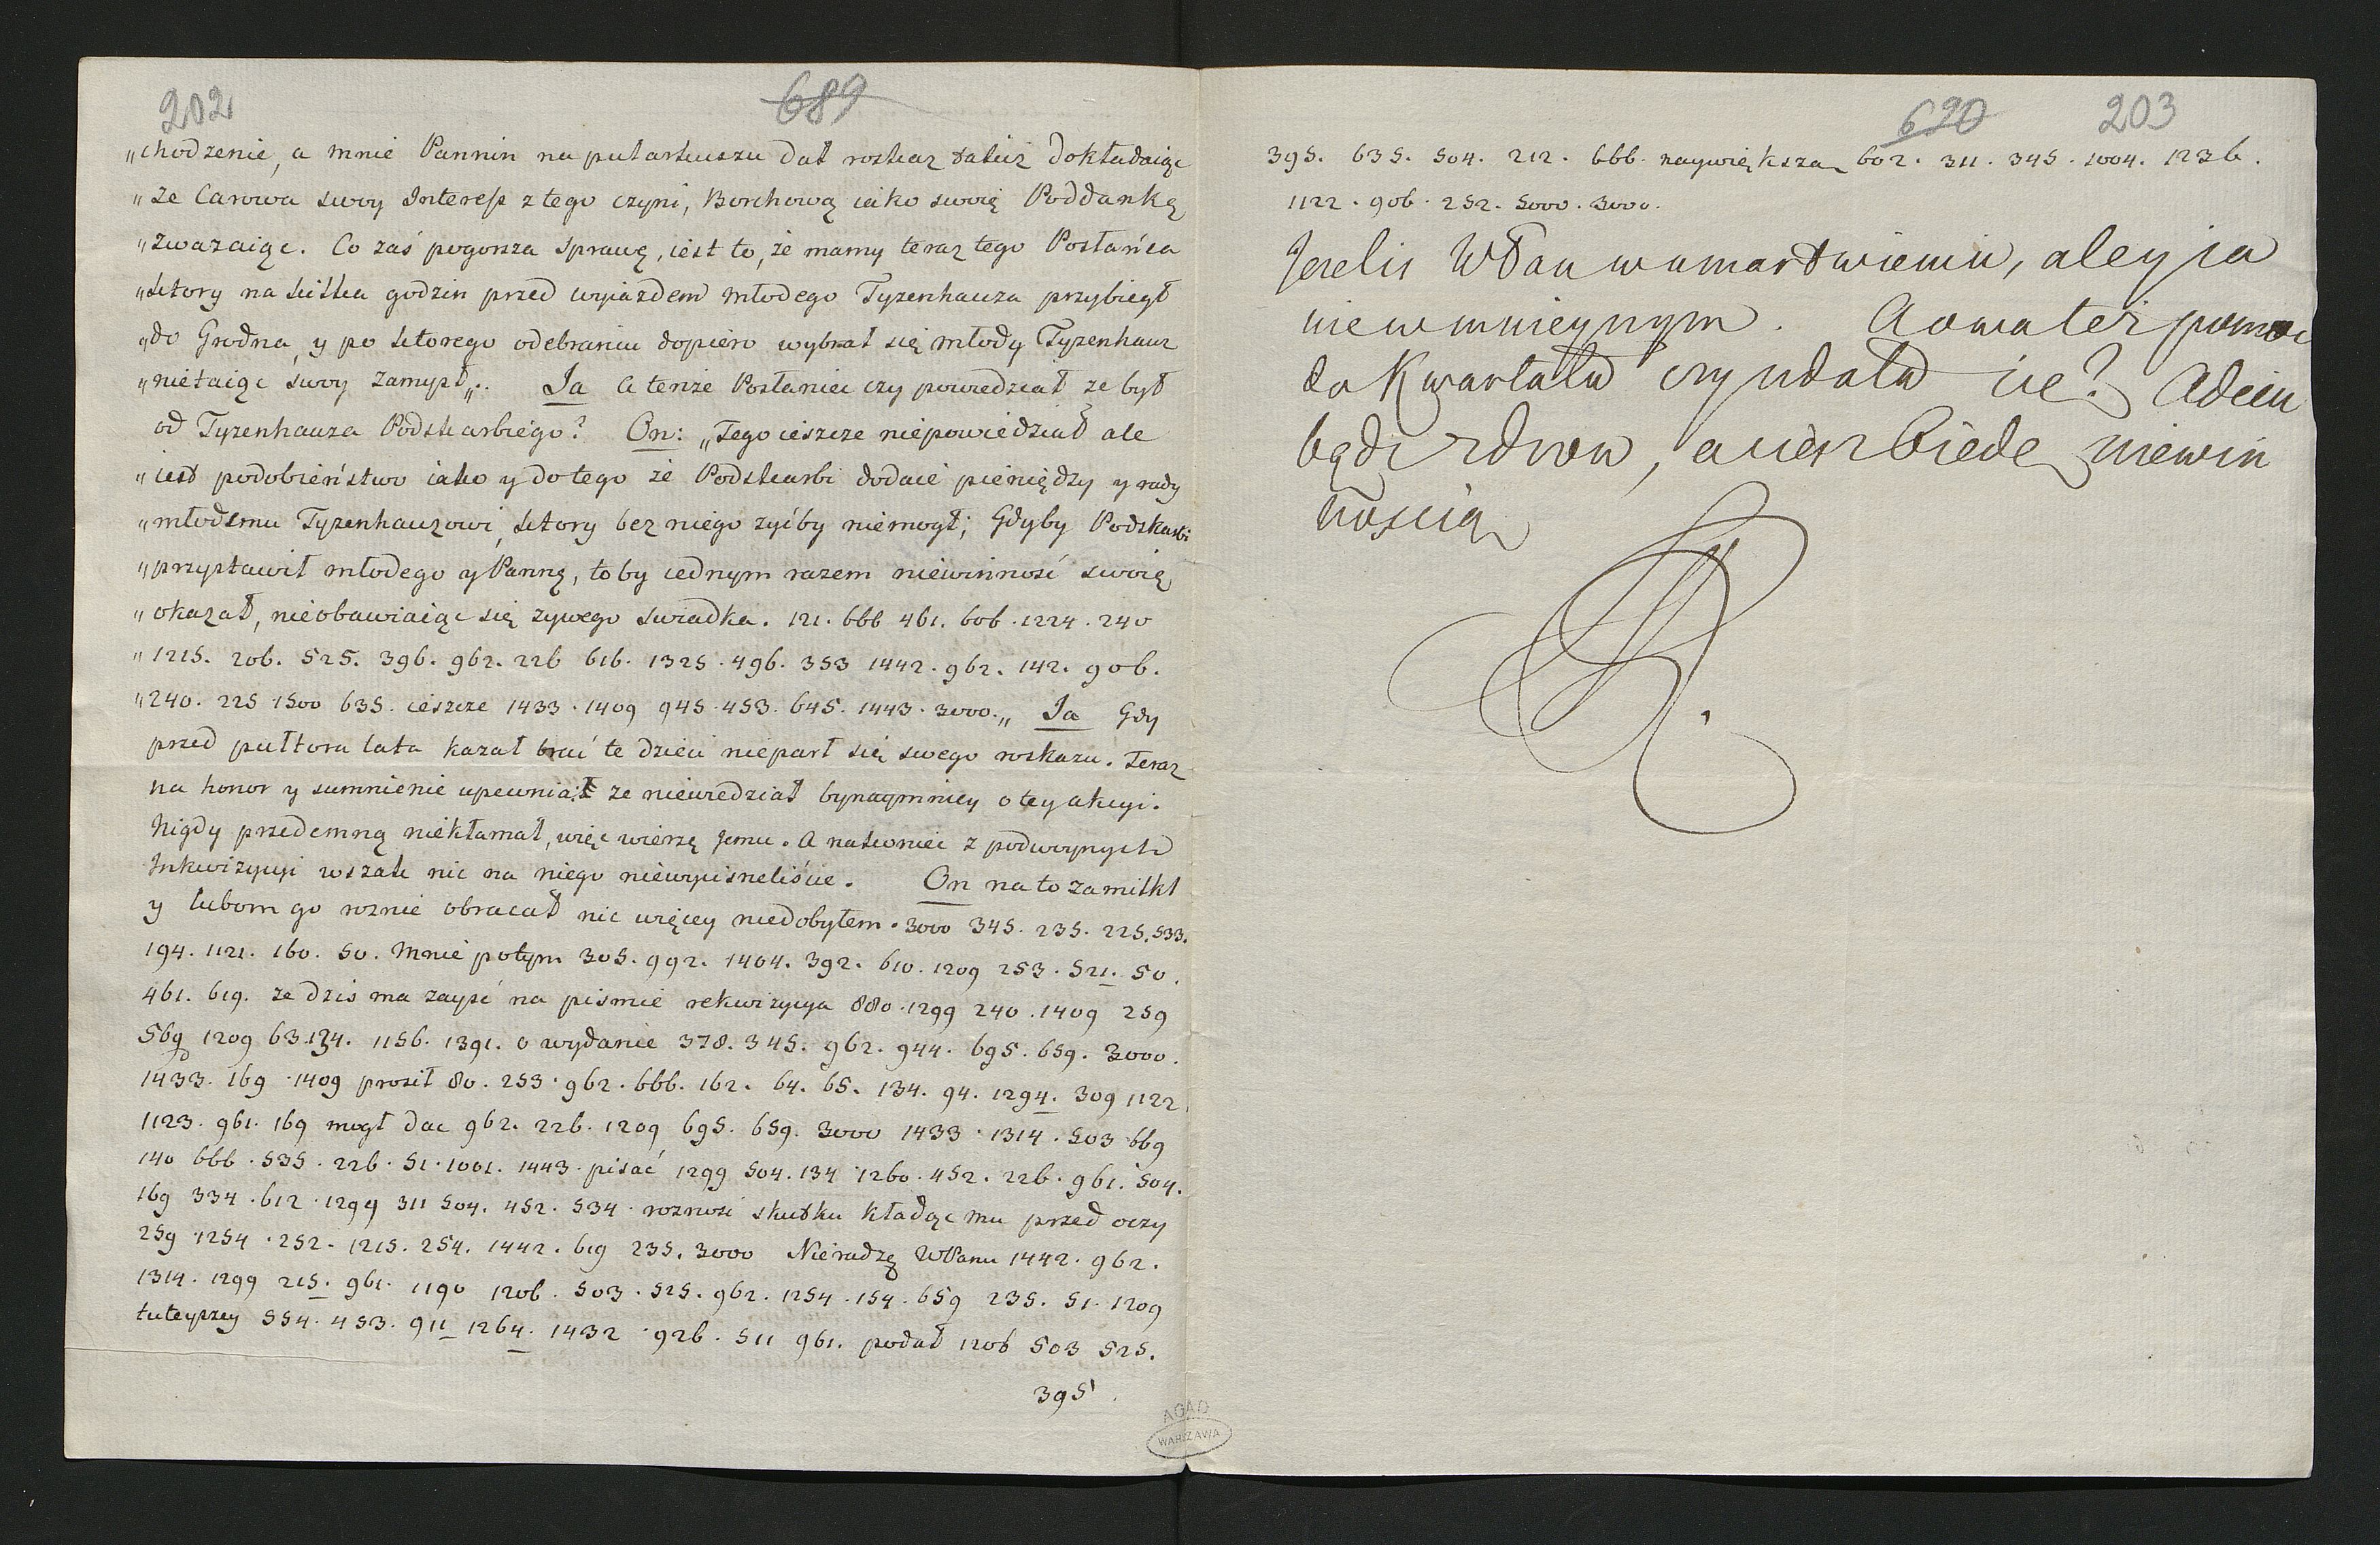 202 689
„chodzenie, a mnie Pannin na pułarkuszu dał roskaz takiż dokładaiąc
„że Carowa swoy Interess z tego czyni, Borchową iako swoię Poddankę
„zwazaiąc. Co zaś pogorsza sprawę, iest to, że mamy teraz tego Posłańca
„ktory na kilka godzin przed wyiazdem młodego Tyzenhauza przybiegł
„do Grodna, y po ktorego odebraniu dopiero wybrał się młody Tyzenhauz
„nietaiąc swoy zamysł„. Ja A tenże Posłaniec czy powiedział że był
od Tyzenhauza Podskarbiego? On: „Tego ieszcze niepowiedział ale
„iest podobieństwo iako y do tego że Podskarbi dodaie pieniędzy y rady
„młodemu Tyzenhauzowi, ktory bez niego zyćby niemogł; Gdyby Podskarbi
„przystawił młodego y Pannę, toby iednym razem niewinność swoię
„okazał, nieobawiaiąc się zywego swiadka. 121. 666 461. 606. 1224. 240
„1215. 206. 525. 396. 962. 226 616. 1325. 496. 353 1442. 962. 142. 906.
„240. 225 1500 635. ieszcze 1433. 1409 945. 453. 645. 1443. 3000.„ Ja Gdy
przed pułtora lata kazał brać te dzieci niepart się swego roskazu. Teraz
na honor y sumnienie upewnia że niewiedział bynaymniey o tey akcyi.
Nigdy przedemną niekłamał, więc wierzę Jemu. A nakoniec z podwoynych
Inkwizycyi wszak nic na niego niewycisneliście. On na to zamilkł
y lubom go roznie obracał nic więcey niedobyłem. 3000 345. 235. 225. 533.
194. 1121. 160. 50. Mnie potym 305. 992. 1404. 392. 610. 1209 253. 521. 50.
461. 619. że dzis ma zayść na pismie rekwizycya 880. 1299 240. 1409 259
569 1209 63.134. 1156. 1391. o wydanie 378. 345. 962. 944. 695. 659. 3000.
1433. 169. 1409 prosił 80. 253. 962. 666. 162. 64. 65. 134. 94. 1294. 309 1122.
1123. 961. 169 mogł dac 962. 226. 1209 695. 659. 3000 1433. 1314. 503 669
140 666. 535. 226. 51. 1001. 1443. pisać 1299 504. 134 1260. 452. 226. 961. 504.
169 334. 612. 1299 311 504. 452. 534. roznosi skutku kładąc mu przed oczy
259. 1254. 252. 1215. 254. 1442. 619 235. 3000 Nieradzę WPanu 1442. 962.
1314. 1299 215. 961. 1190 1206. 503. 525. 962. 1254. 154. 659 235. 51. 1209
tuteyszey 554. 453. 911 1264. 1432. 926. 511 961. podał 1206 503 525.
395.
AGAD
WARSZAWA
690 203
395. 635. 504. 212. 666. naywiększa 602. 311. 345. 1004. 1236.
1122. 906. 252. 5000. 3000.
Jezelis WPan w umartwieniu, ale y ia
nie w mnieyszym. A owa też pomoc
do Kwartału czy udała się? Adieu
bądz zdrow, a ciesz biedę niewin
nością
SAR.